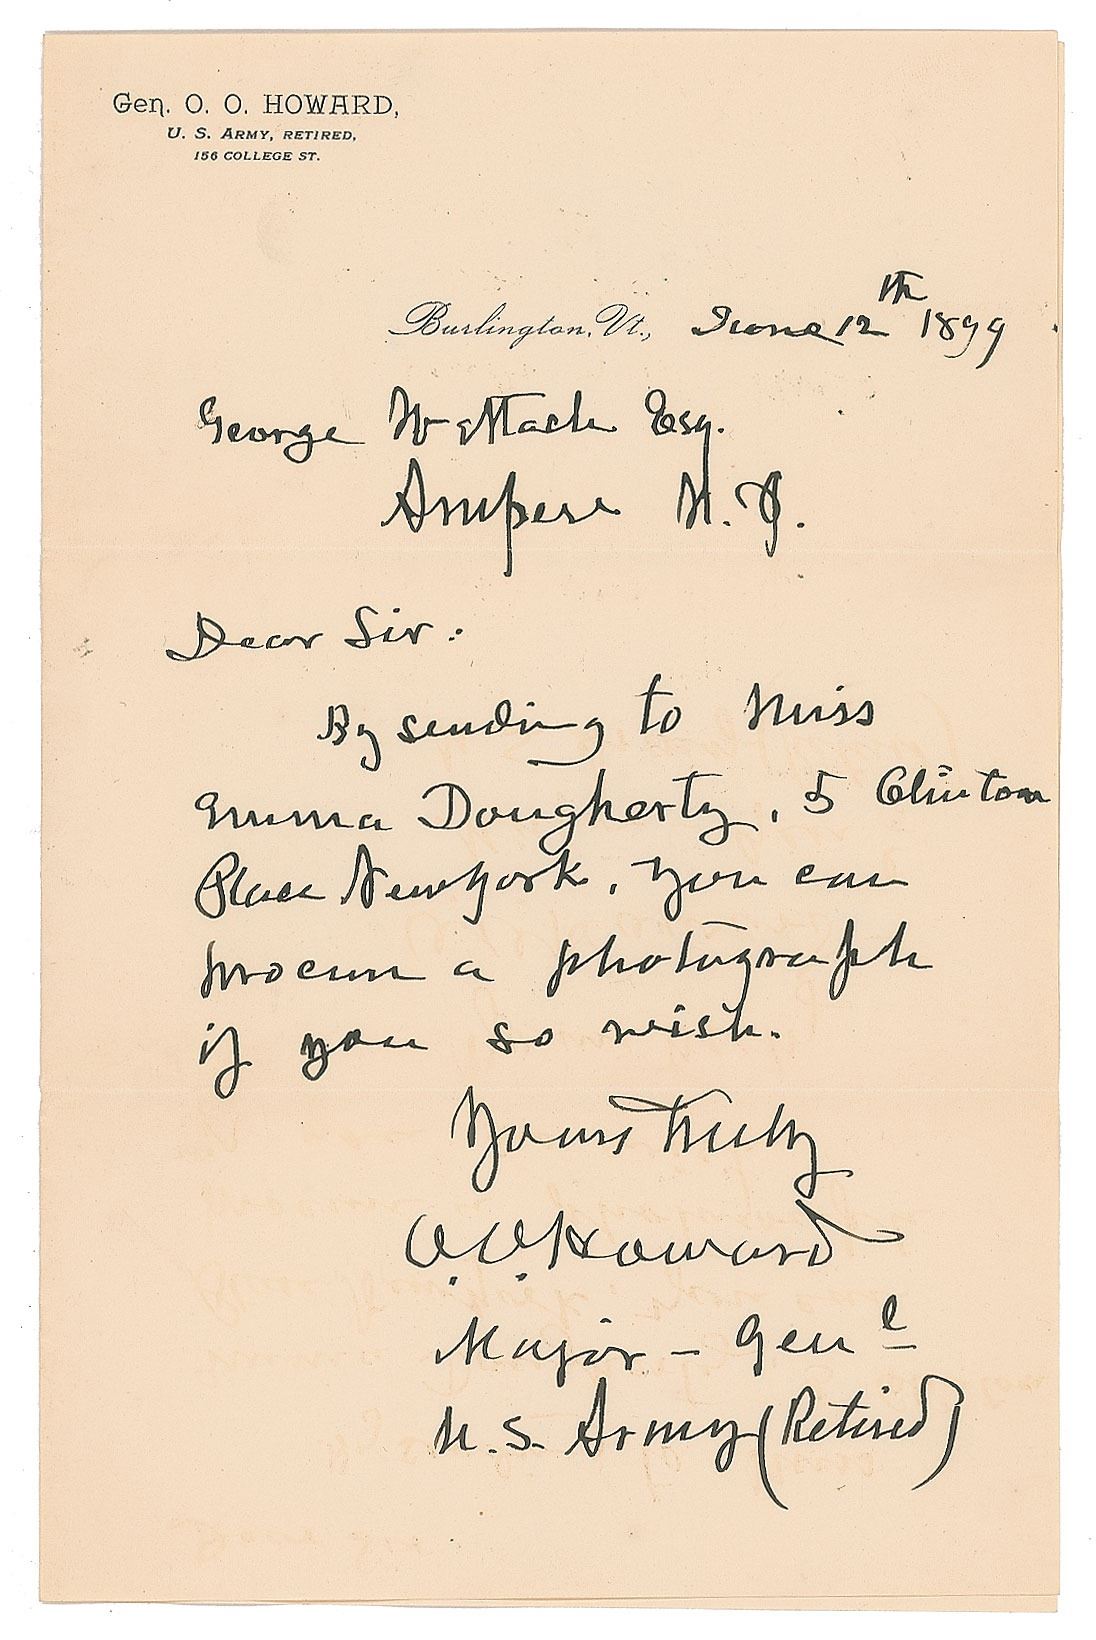 Gen. O. O. HOWARD,
U. S. ARMY, RETIRED,
156 COLLEGE ST.
Burlington, Vt., June 12th 1899
George W Mach Esq.
Ampere N. J.
Dear Sir:
By sending to Miss
Emma Dougherty, 5 Clinton
Place New York, you can
procure a photograph
if you so wish.
Yours truly
O. O. Howard
Major - Genl
U. S. Army (Retired)